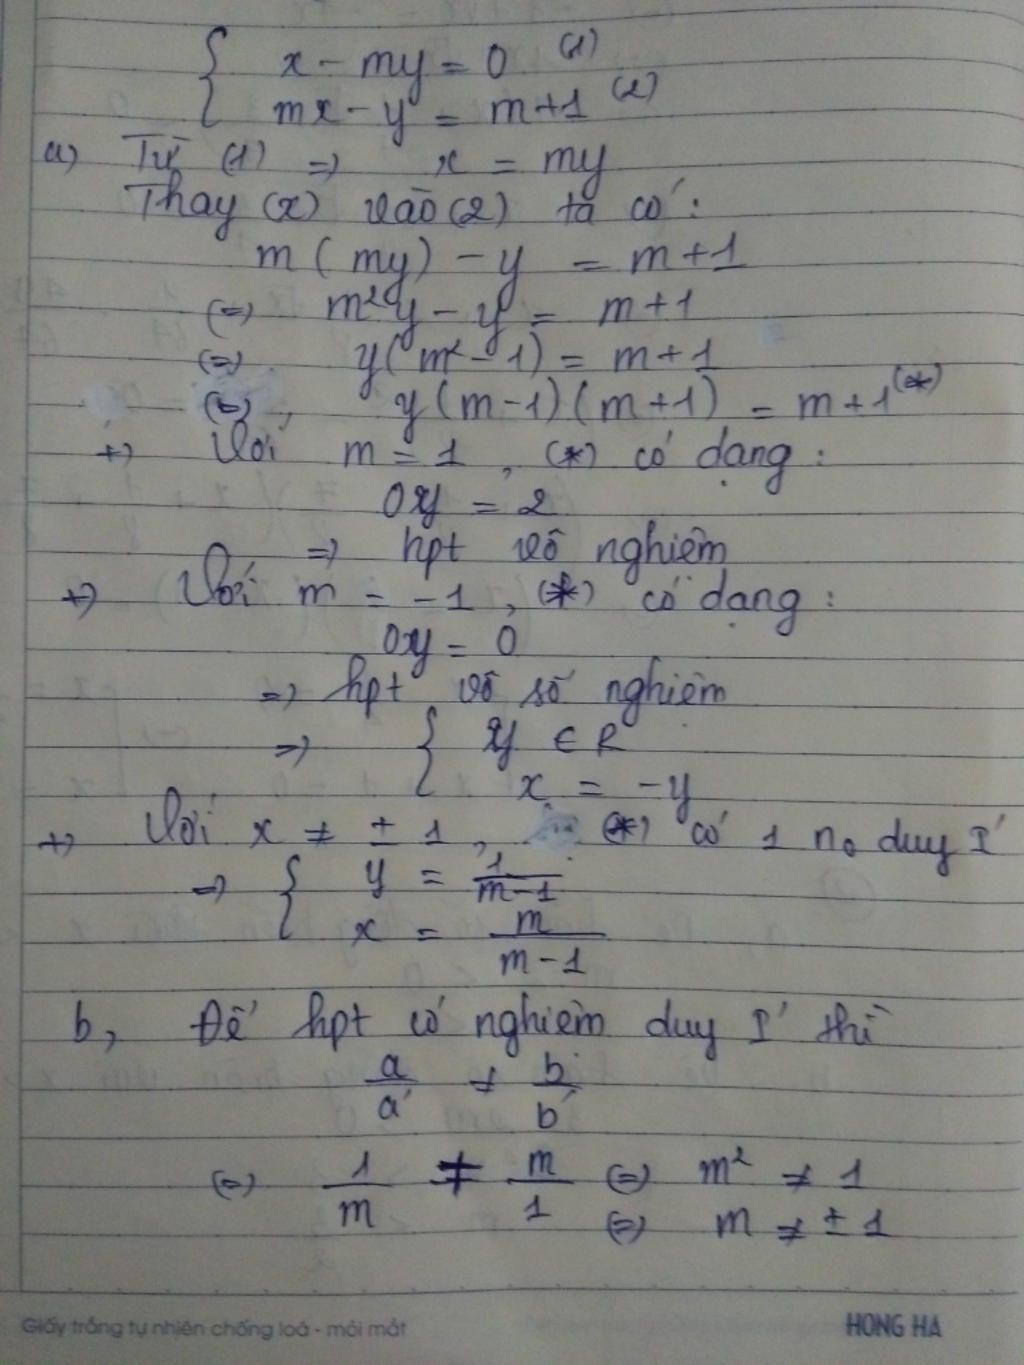 { x - my = 0 (1)
mx - y = m+1 (2)
a) Từ (1) => x = my
Thay (x) vào (2) ta có:
m(my) - y = m+1
(=) m²y - y = m+1
(=) y(m² - 1) = m+1
(=) y(m-1)(m+1) = m+1 (*)
+) Với m = 1, (*) có dạng:
0y = 2
=) hpt vô nghiệm
+) Với m = -1, (*) có dạng:
0y = 0
=) hpt vô số nghiệm
=) { y ∈ R
x = -y
+) Với x ≠ ± 1, (*) có 1 no duy I'
=) { y = 1/(m-1)
x = m/(m-1)
b, Để hpt có nghiệm duy I' thì
a/a' ≠ b/b'
(=) 1/m ≠ m/1 (=) m² ≠ 1
(=) m ≠ ± 1
Giấy trắng tự nhiên chống loá - mỏi mắt HONG HA